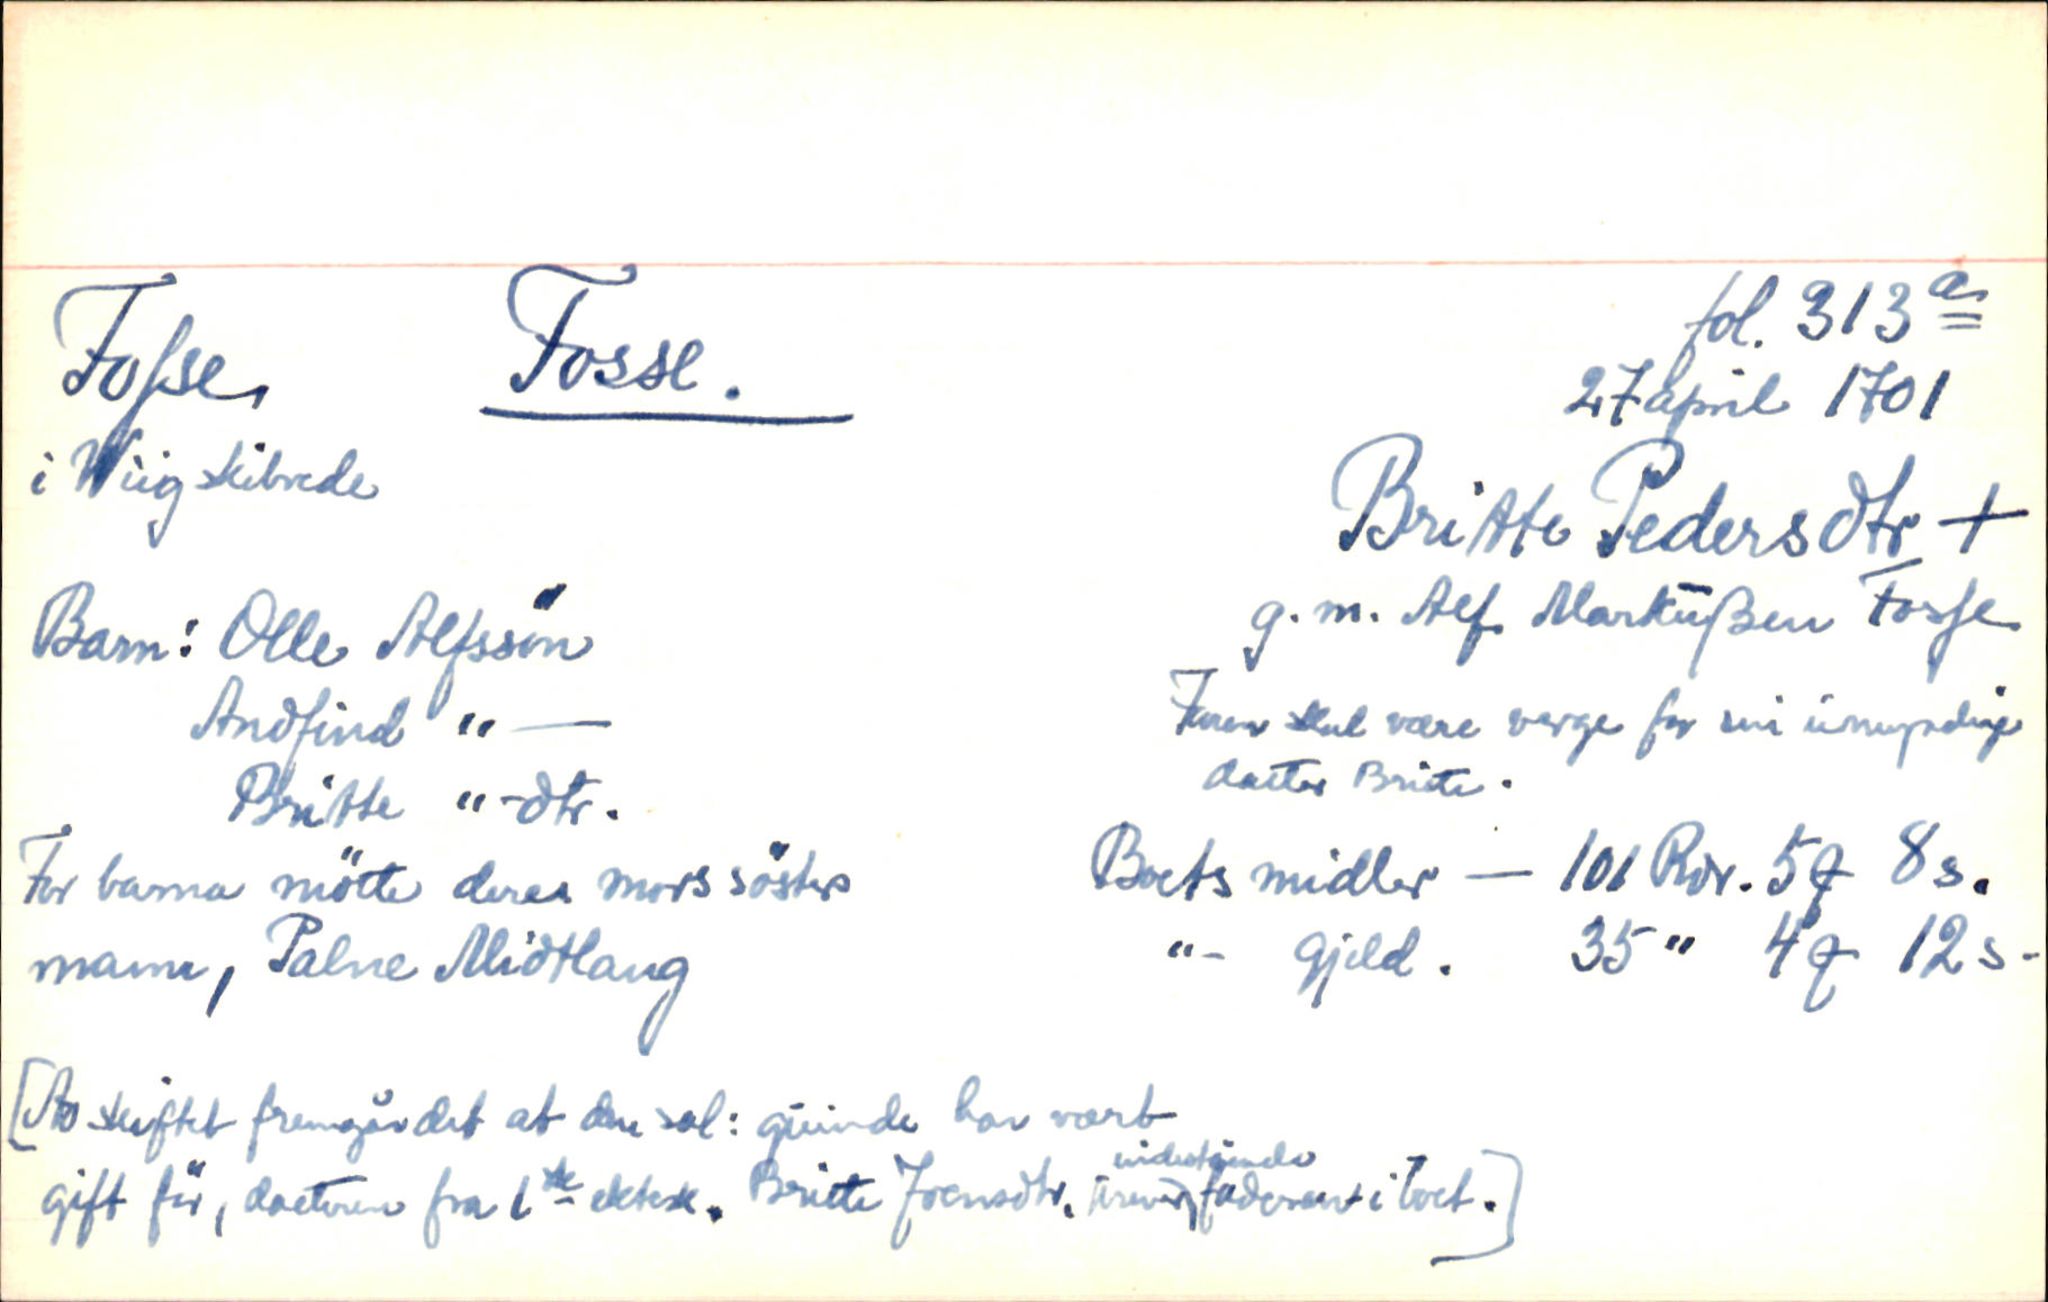 Fosse
Fosse.
fol. 313 a
27 april 1701
i Wiig skibrede
Britte Pedersdtr +
g. m. Alf Markŭßen Fosse
Barn: Olle Alfssön
Andfind "—
Britte "-dtr.
Faren skal være verge for sin ŭmyndige
datter Britte.
For barna mötte deres mors sösters
mann, Palne Midtlaug
Boets midler — 101 Rdr. 5 ꝗ 8 s.
"- Gjeld. 35 " 4 ꝗ 12 s-
[Av skiftet fremgår det at den sal: qŭinde har vært
gift før, datteren fra 1ste ektesk. Britte Joensdtr. krever indestående faderarv i boet.]